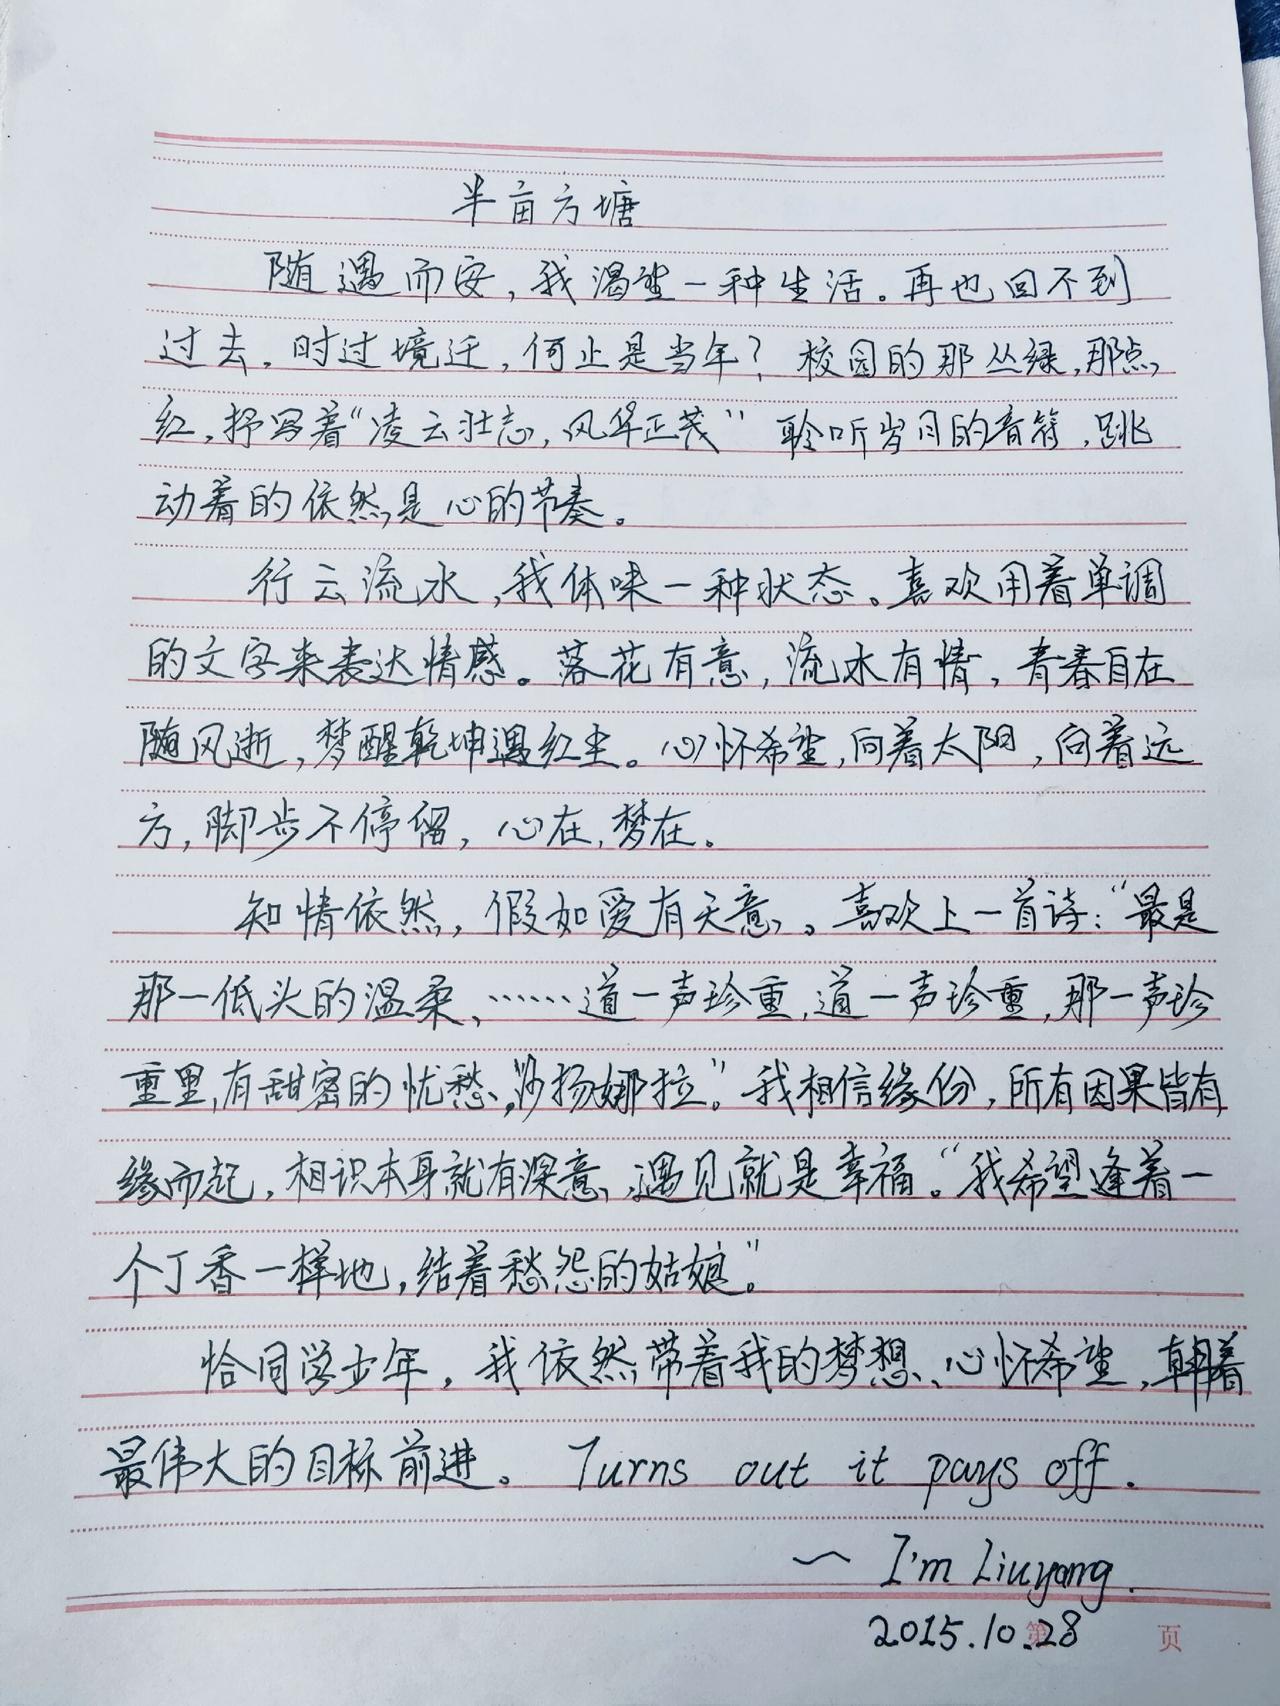 半亩方塘
随遇而安，我渴望一种生活。再也回不到
过去，时过境迁，何止是当年？校园的那丛绿，那点
红，抒写着“凌云壮志，风华正茂”聆听岁月的音符，跳
动着的依然是心的节奏。
行云流水，我体味一种状态。喜欢用着单调
的文字来表达情感。落花有意，流水有情，青春自在
随风逝，梦醒乾坤遇红尘。心怀希望，向着太阳，向着远
方，脚步不停留，心在，梦在。
知情依然，假如爱有天意。喜欢上一首诗：“最是
那一低头的温柔，……道一声珍重，道一声珍重，那一声珍
重里，有甜蜜的忧愁，沙扬娜拉”。我相信缘份，所有因果皆有
缘而起，相识本身就有深意，遇见就是幸福。“我希望逢着一
个丁香一样地，结着愁怨的姑娘。”
恰同学少年，我依然带着我的梦想、心怀希望，朝着
最伟大的目标前进。Turns out it pays off.
～ I'm Liuyang.
2015.10.28
第 页